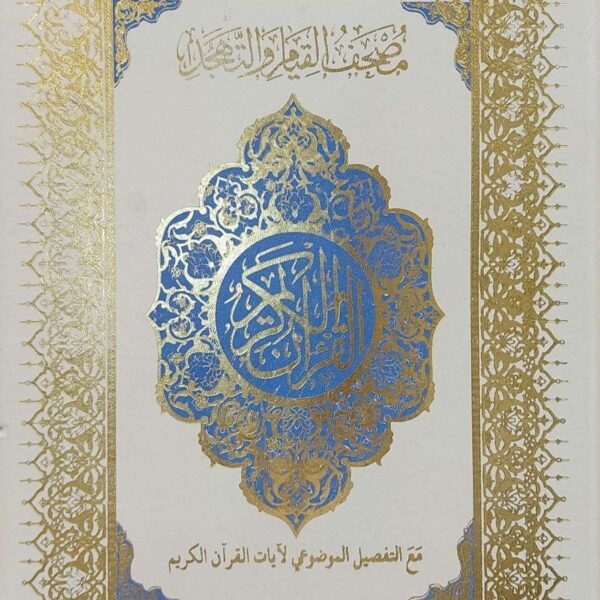 مُصْحَفُ القِيَامِ وَالتَّهَجُّدِ
القرآن الكريم
مَعَ التفصيل الموضوعي لآيات القرآن الكريم